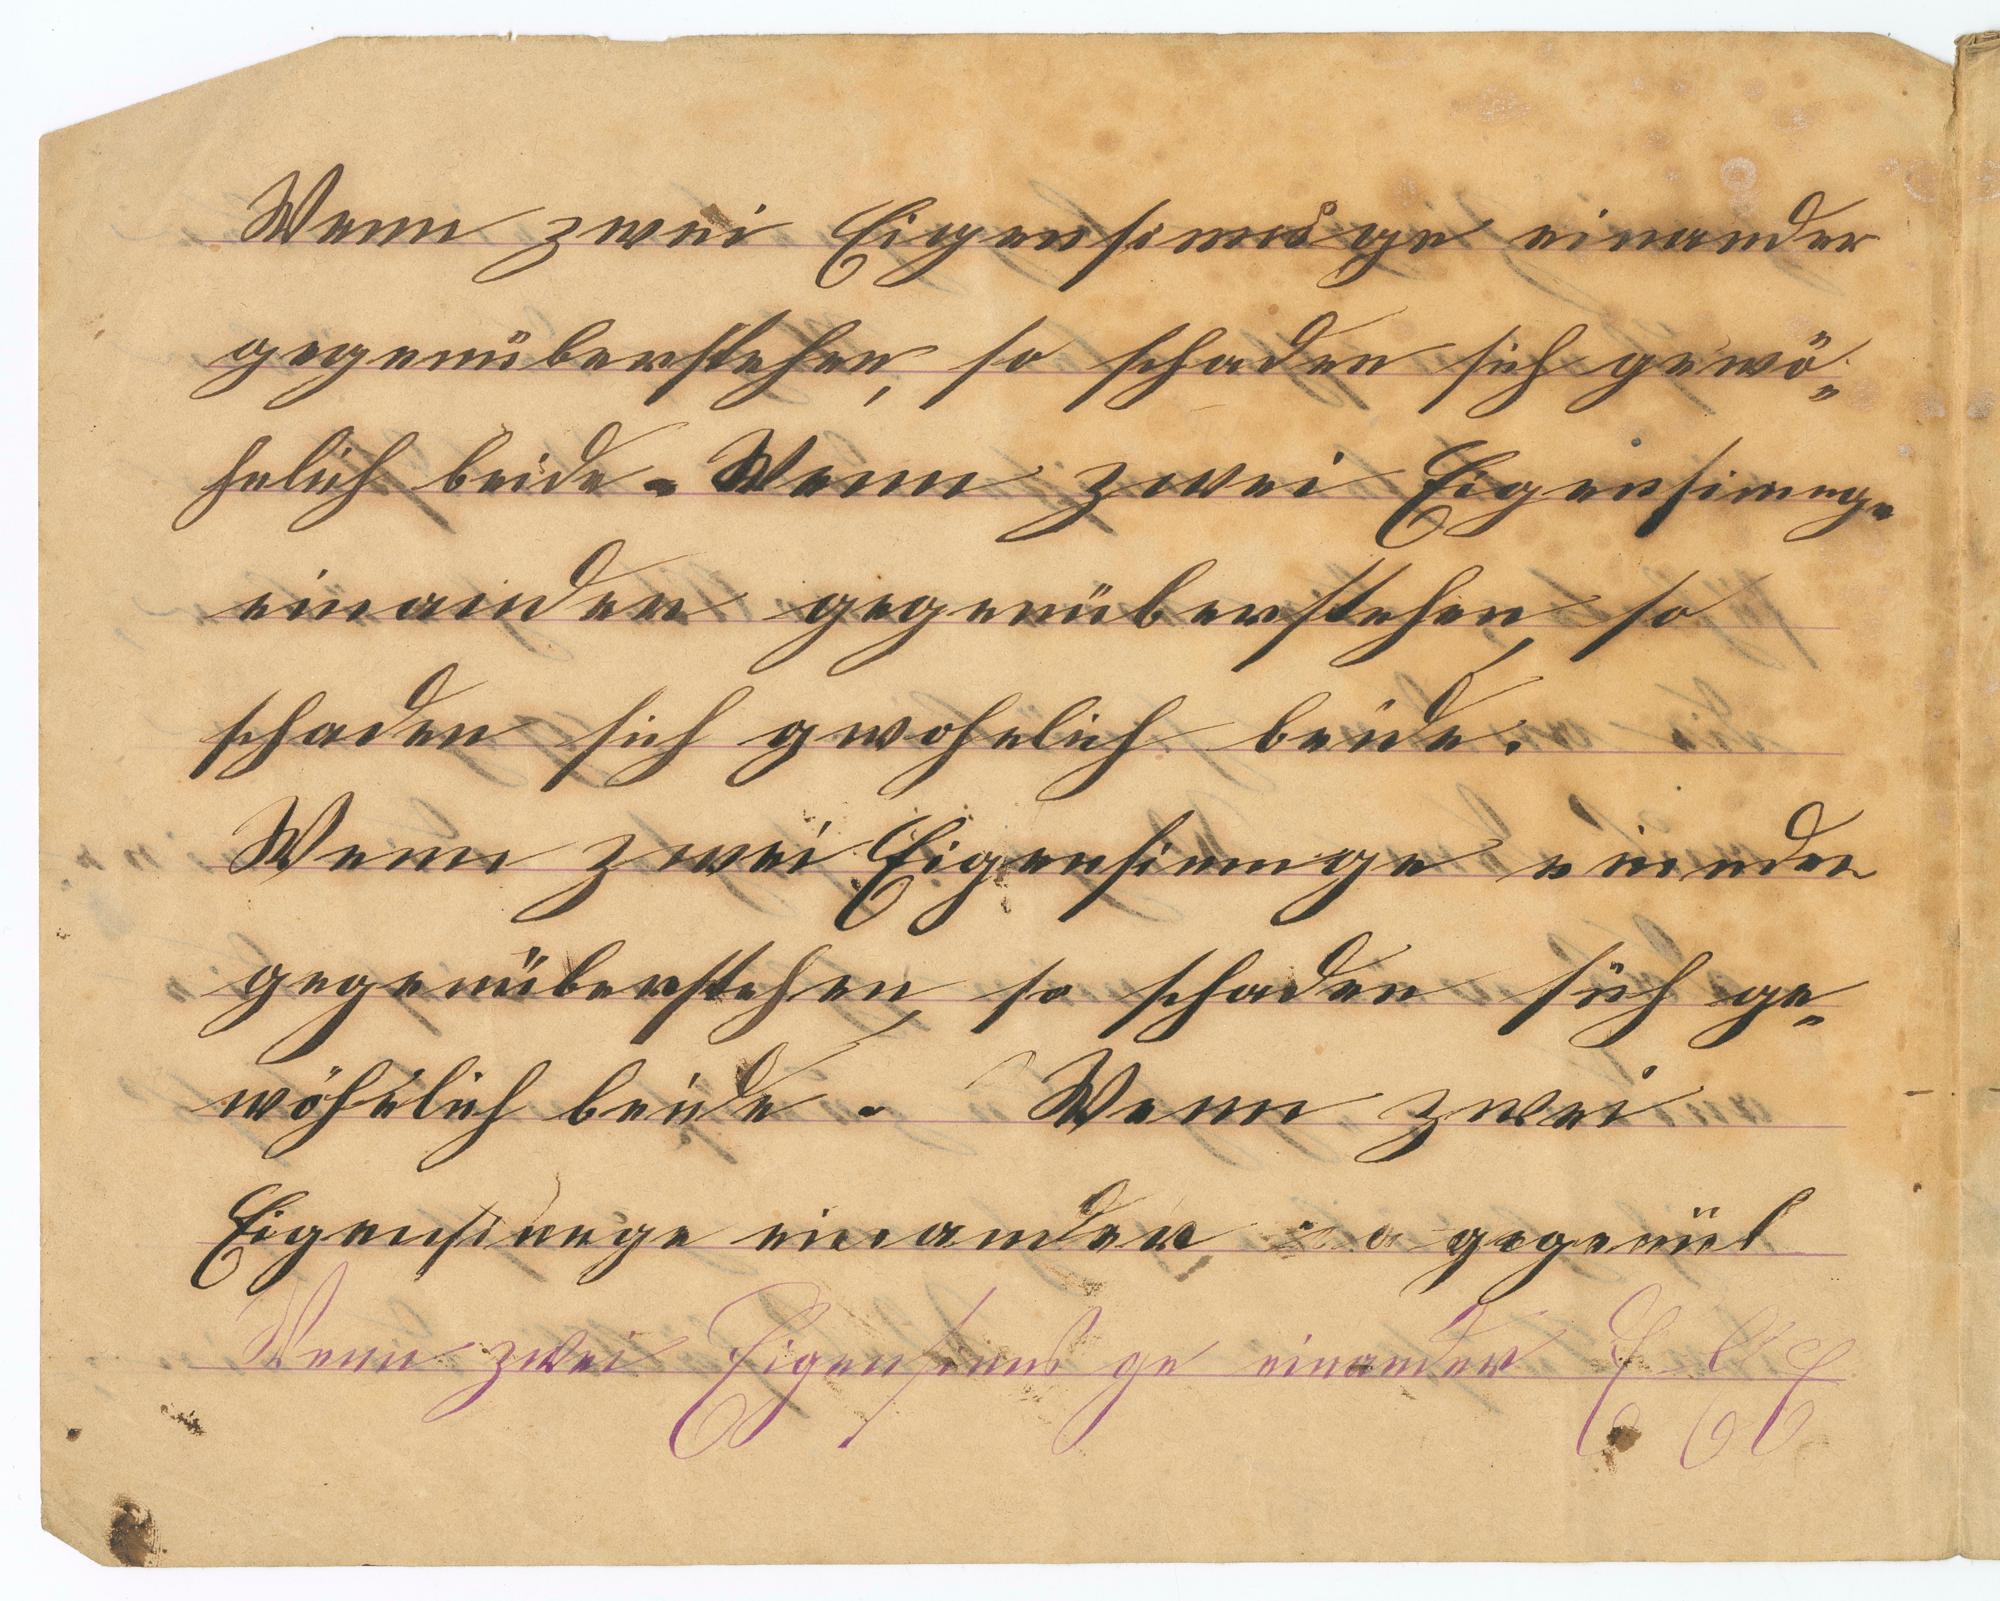 Wenn zwei Eigensinnige einander
gegenüberstehen, so schaden sich gewö„
hnlich beide. Wenn zwei Eigensinnge
einander gegenüberstehen, so
schaden sich gwohnlich beide.
Wenn zwei Eigensinnge einder
gegenüberstehen, so schaden sich ge„
wöhnlich beide. Wenn zwei
Eigensinnge einander gegenüb
Wenn zwei Eigensinnige einander E E E